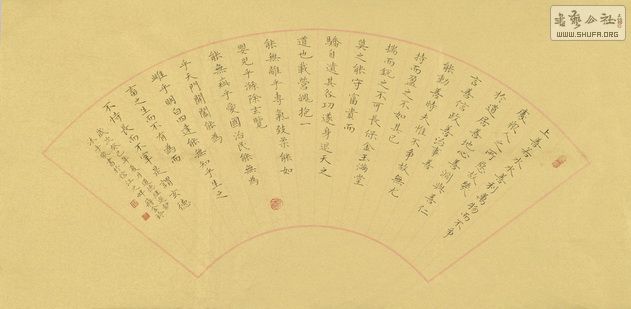 上善若水水善利萬物而不爭
處衆人之所惡故幾
於道居善地心善淵與善仁
言善信政善治事善
能動善時夫惟不爭故無尤
持而盈之不如其已
揣而銳之不可長保金玉滿堂
莫之能守富貴而
驕自遺其咎功遂身退天之
道也載營魄抱一
能無離乎專氣致柔能如
嬰兒乎滌除玄覽
能無疵乎愛國治民能無為
乎天門開闔能為
雌乎明白四達能無知乎生之
畜之生而不有為而
不恃長而不宰是謂玄德
WWW.SHUFA.ORG